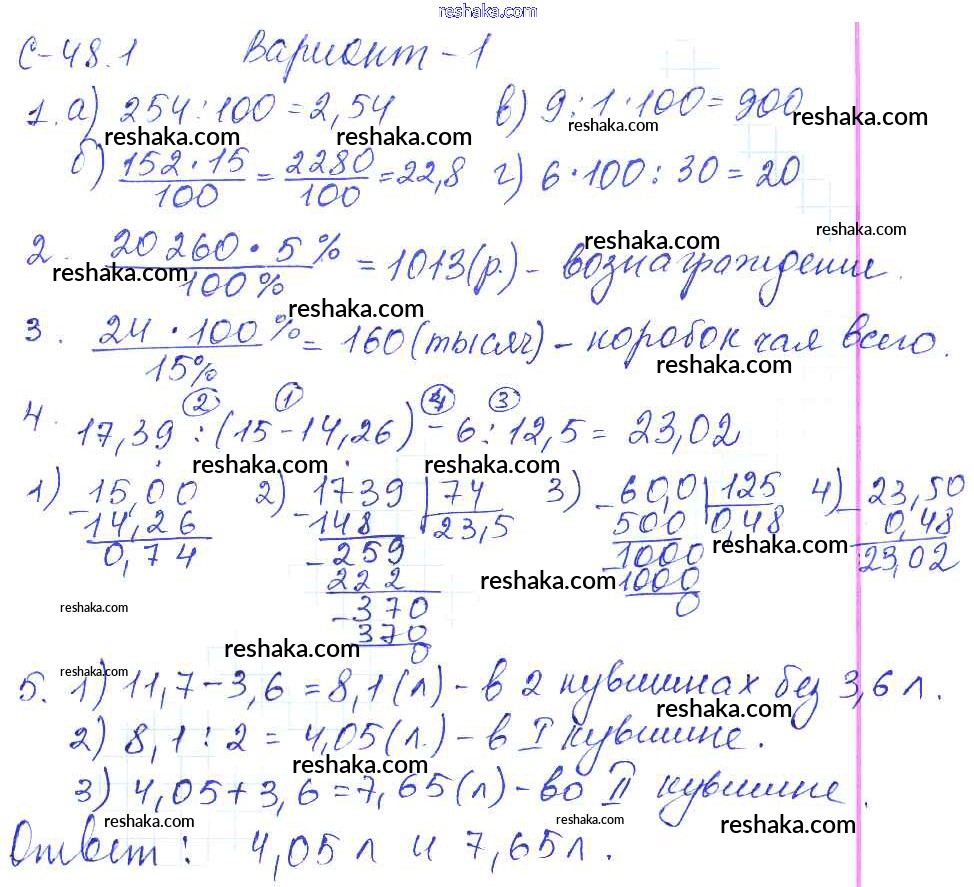 reshaka.com
С-48.1 Вариант-1
1. а) 254 : 100 = 2,54 в) 9 : 1 · 100 = 900
reshaka.com reshaka.com reshaka.com reshaka.com
б) 152 · 15 / 100 = 2280 / 100 = 22,8 г) 6 · 100 : 30 = 20
reshaka.com reshaka.com
2. 20260 · 5% / 100% = 1013 (р.) - вознаграждение.
reshaka.com reshaka.com
3. 24 · 100% / 15% = 160 (тысяч) - коробок чая всего.
reshaka.com
② ① ④ ③
4. 17,39 : (15 - 14,26) - 6 : 12,5 = 23,02
reshaka.com reshaka.com
1) 15,00 2) 1739 | 74 3) 60,0 | 125 4) 23,50
- 14,26 - 148 23,5 - 500 0,48 - 0,48
0,74 - 259 - 1000 23,02
222 1000
- 370 0
370
0
reshaka.com reshaka.com reshaka.com
reshaka.com
5. 1) 11,7 - 3,6 = 8,1 (л) - в 2 кувшинах без 3,6 л.
reshaka.com reshaka.com
2) 8,1 : 2 = 4,05 (л.) - в I кувшине.
reshaka.com
3) 4,05 + 3,6 = 7,65 (л) - во II кувшине.
reshaka.com reshaka.com reshaka.com
Ответ: 4,05 л и 7,65 л.